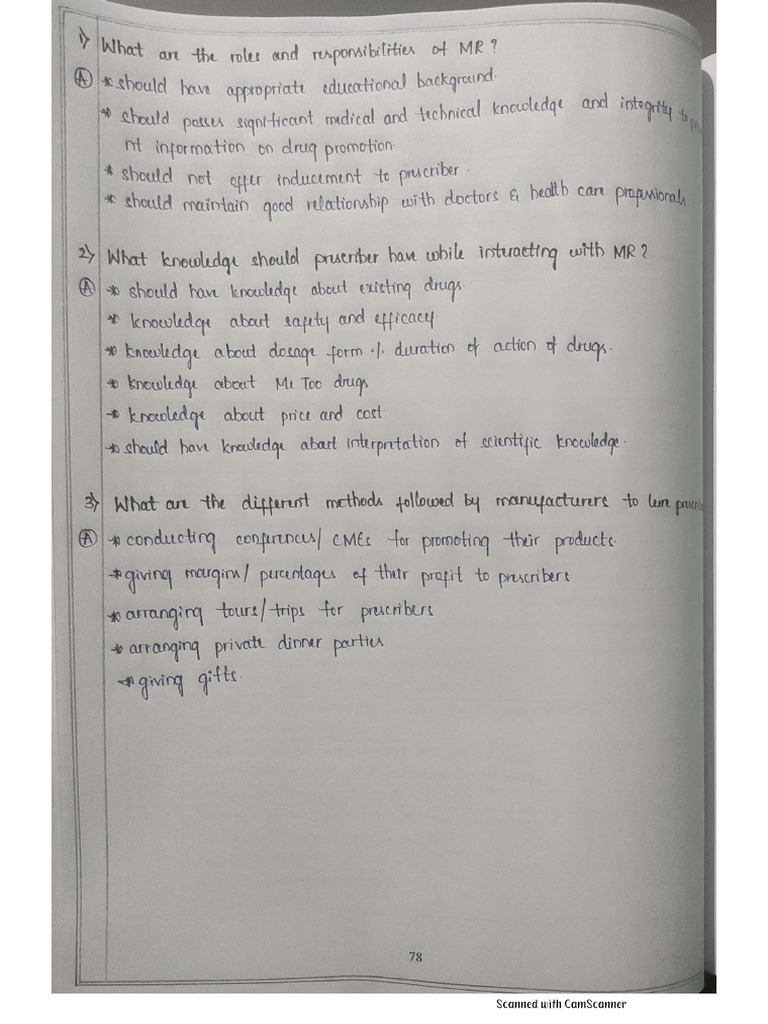 1) What are the roles and responsibilities of MR?
(A) * should have appropriate educational background.
* should posses significant medical and technical knowledge and integrity to
nt information on drug promotion.
* should not offer inducement to prescriber.
* should maintain good relationship with doctors & health care professionals
2) What knowledge should prescriber have while interacting with MR?
(A) * should have knowledge about existing drugs.
* knowledge about safety and efficacy.
* knowledge about dosage form % duration of action of drugs.
* knowledge about Me Too drugs
* knowledge about price and cost
* should have knowledge about interpretation of scientific knowledge.
3) What are the different methods followed by manufacturers to lure
(A) * conducting conferences/ CMEs for promoting their products.
* giving margins/ percentages of their profit to prescribers.
* arranging tours/trips for prescribers
* arranging private dinner parties
* giving gifts.
78
Scanned with CamScanner